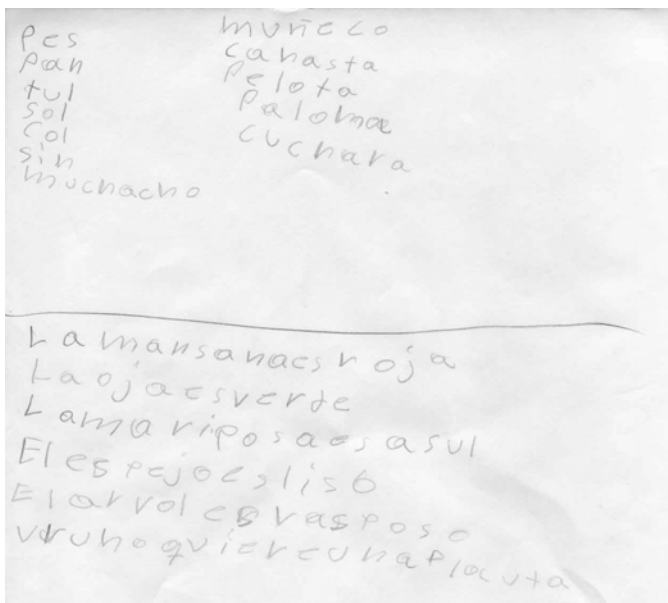 pes
pan
tul
sol
col
sin
muchacho
muñeco
canasta
pelota
paloma
cuchara
La mansanaes roja
La ojaesverde
Lamariposaesasul
Elespejoesliso
Elarvolesrasposo
vrunoquiereuna